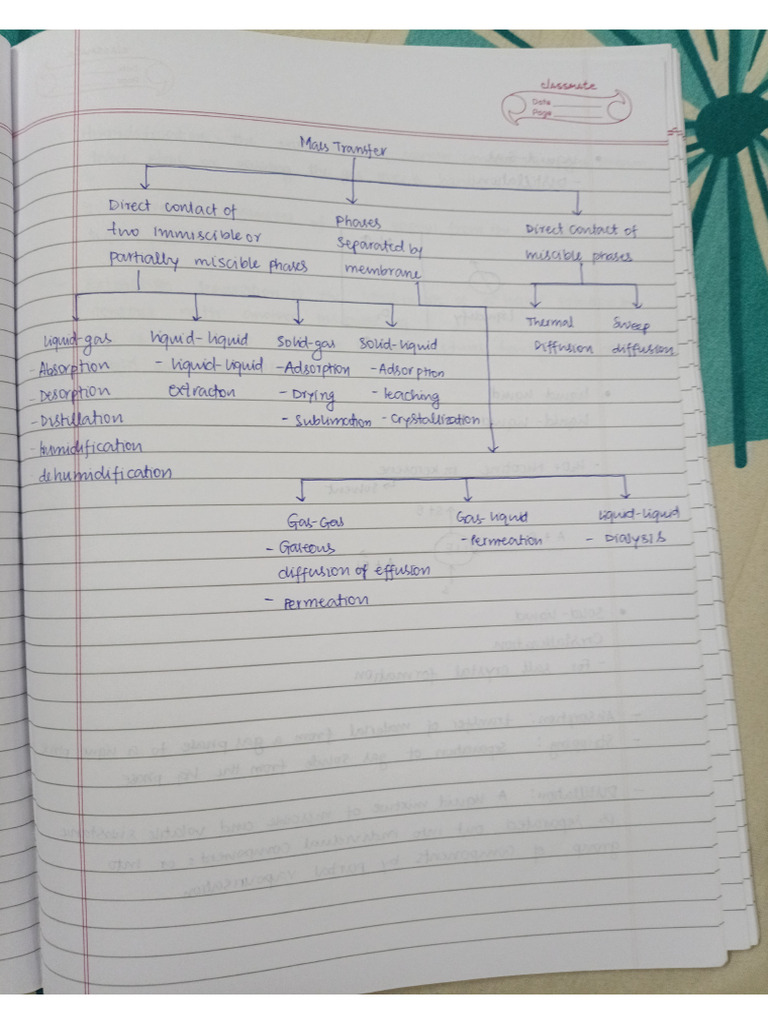 classmate
Date
Page
Mass Transfer
Direct contact of
two immiscible or
partially miscible phases
Phases
separated by
membrane
Direct contact of
miscible phases
Liquid-gas
- Absorption
- Desorption
- Distillation
- humidification
- dehumidification
Liquid-liquid
- Liquid-liquid
extracton
Solid-gas
- Adsorption
- Drying
- Sublimation
Solid-liquid
- Adsorption
- leaching
- Crystallization
Thermal
Diffusion
Sweep
diffusion
Gas-Gas
- Gaseous
diffusion of effusion
- Permeation
Gas-liquid
- Permeation
Liquid-Liquid
- Dialysis